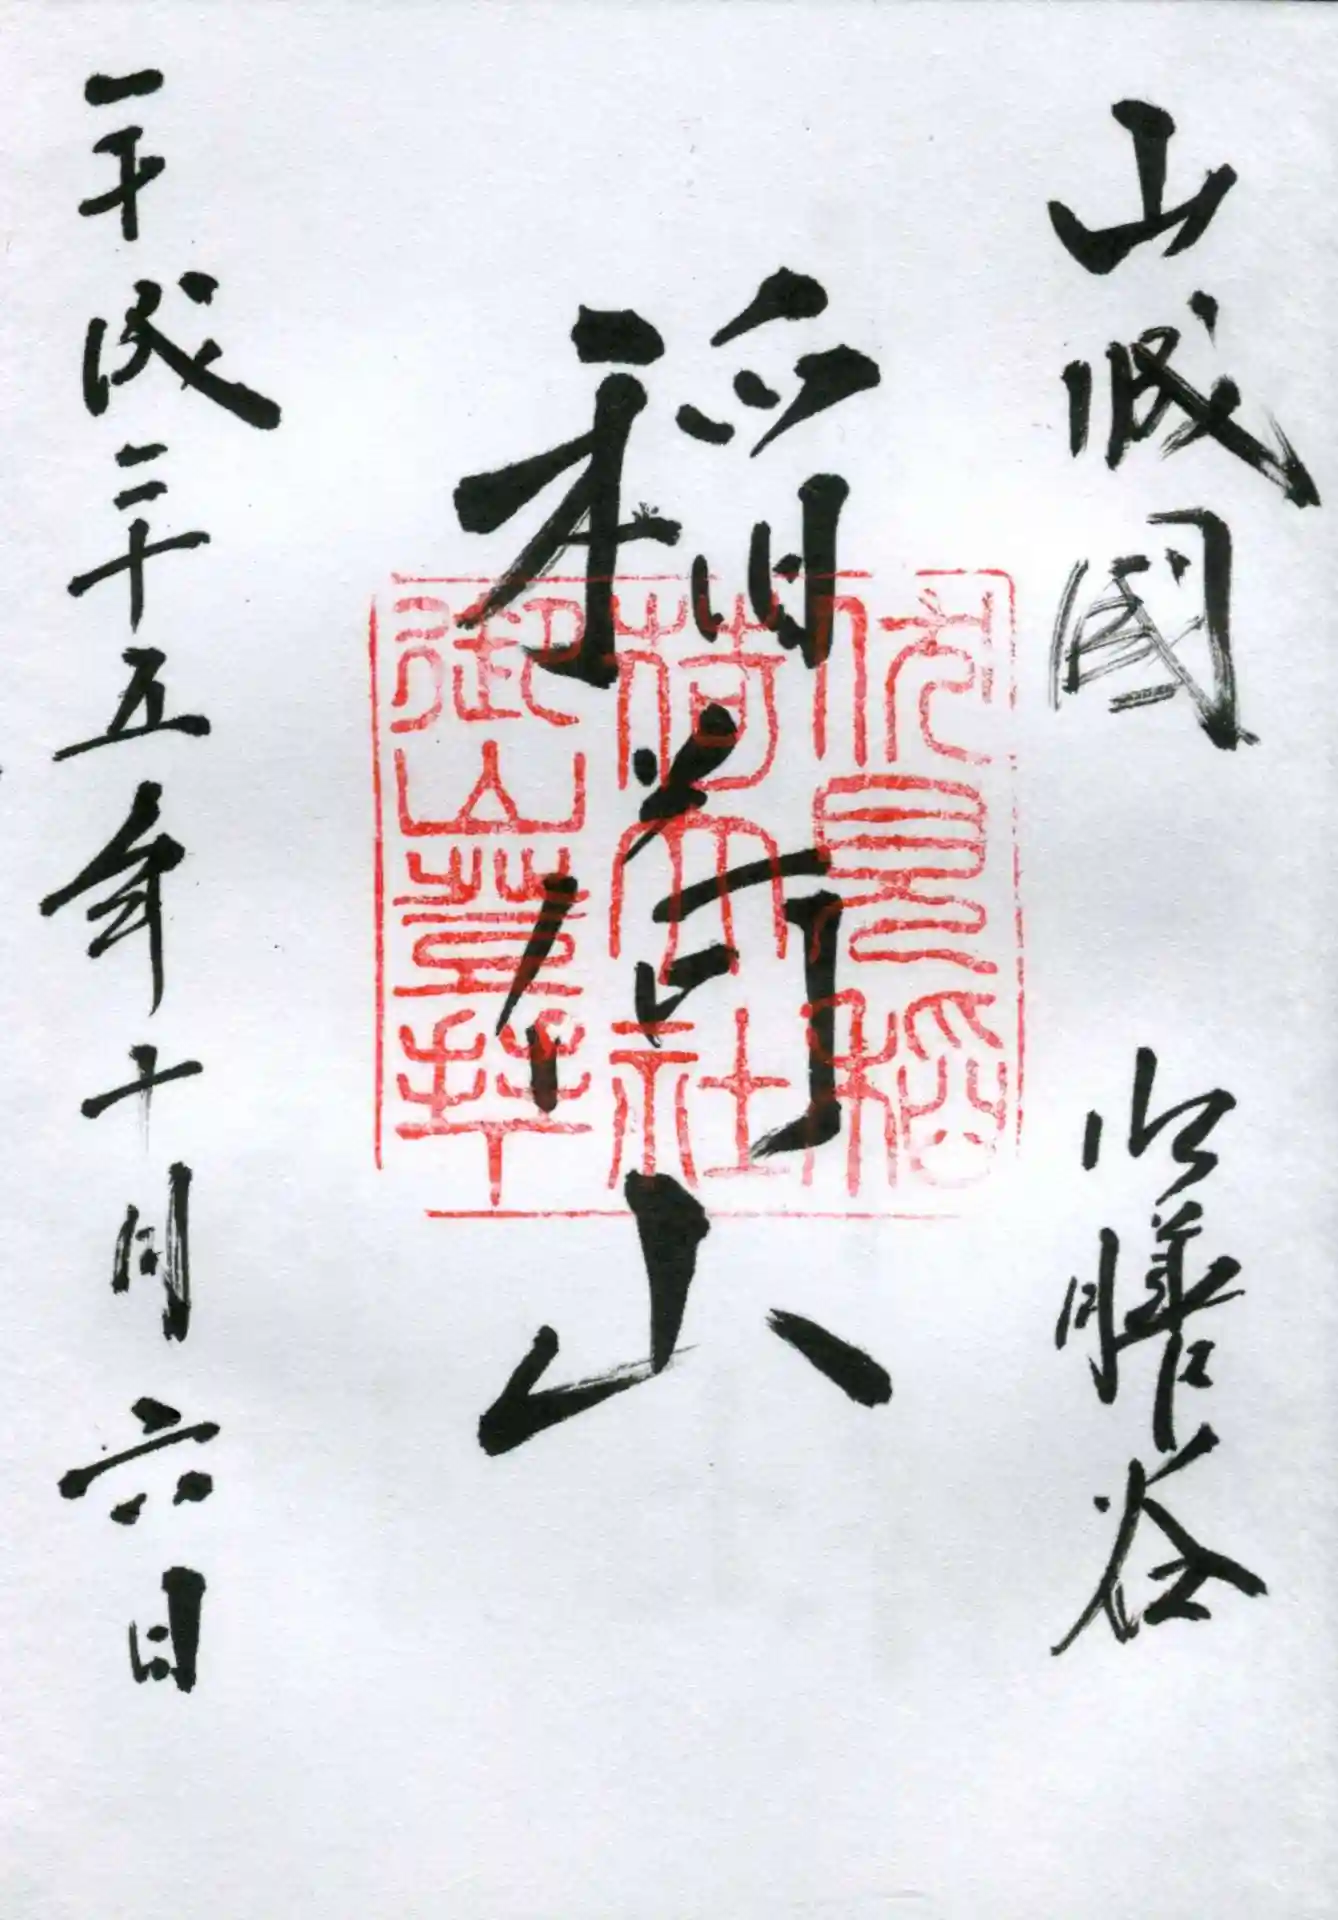 山城國 御膳谷
稲荷山
伏見稲
荷大社
御山参拝
平成二十五年十月六日